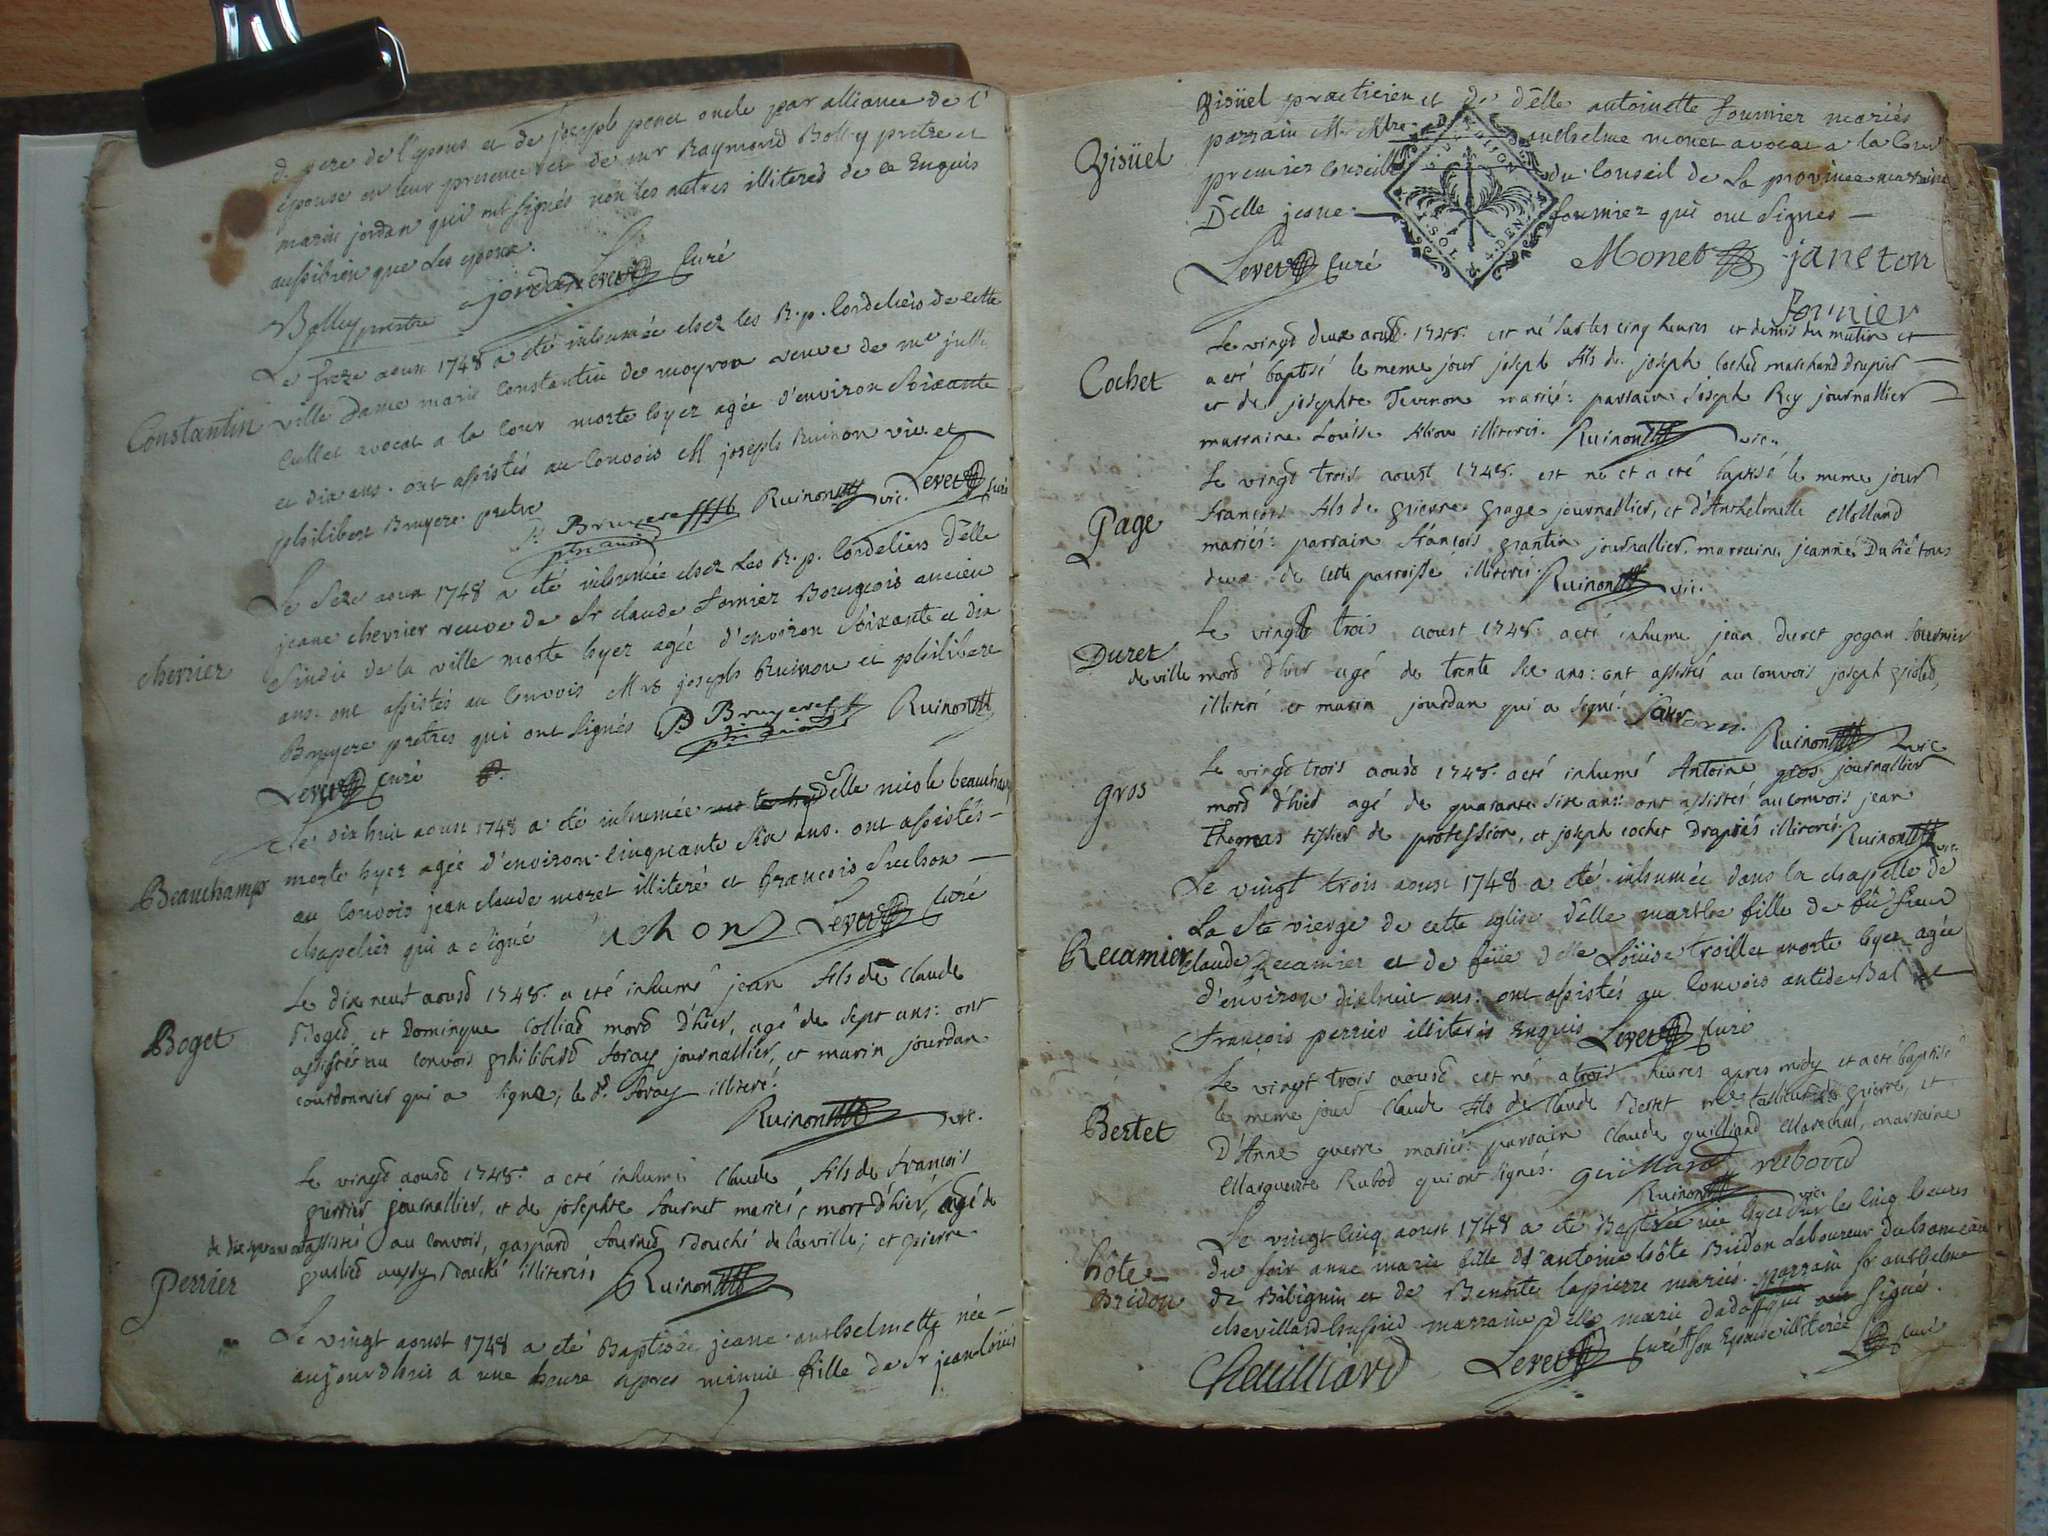 d. pere de l'epous et de joseph penet oncle par alliance de l'
epouse en leur presence et de mr Raymond Bolley pretre et
marin jordan qui ont signés non les autres illiteres de ce Enquis
aussibien que les epoux.
Bolley prestre jordan Levet Curé
Constantin
Le treze aoust 1748 a été inhumée chez les R. p. Cordeliers de cette
ville Dame marie Constantin de moyron veuve de me
Cullet avocat a la Cour morte hyer agée d'environ soixante
et dix ans. ont assistés au Convois M joseph Ruinon vic. et
philibert Bruyere pretre
P. Bruyere Ruinon vic. Levet curé
chevrier
Le seze aoust 1748 a été inhumée chez les R. p. Cordeliers d'elle
jeane chevrier veuve de Sr claude fornier Bourgeois ancien
sindic de la ville morte hyer agée d'environ soixante et dix
ans. ont assistés au Convois Mrs joseph Ruinon et philibert
Bruyere pretres qui ont signés P Bruyere Ruinon
Levet Curé
Beauchamp
Le dix huit aoust 1748 a été inhumée Delle nicole beauchamp
morte hyer agée d'environ cinquante six ans. ont assistés
au Convois jean claude moret illiteré et francois
chapelier qui a signé Levet Curé
Boget
Le dix neuf aoust 1748. a eté inhumé jean fils de Claude
Boget et Dominique Colliad mord d'hier, agé de sept ans: ont
assistés au convois philiberd foray journallier, et marin jourdan
courdonnier qui a signé, le d. foray illiteré.
Ruinon vic.
Le vingd aousd 1748. a eté inhumé Claude fils de francois
perrier journallier, et de josephte fournet mariés, mort d'hier, agé de
de dix sept ans ont assistés au convois, gaspard fourned Bouché de la ville; et pierre
Perrier
aussy Bouché illiterés Ruinon
Le vingt aoust 1748 a eté Baptisée jeane anthelmette née
aujourdhuis a une heure apres minuit fille de Sr jean loüis
Visüel practicien et de d'elle antoinette fournier mariés
Visüel
parrain Mr Mtre anthelme monet avocat a la Cour
premier Conseiller du Conseil de La province marraine
D'elle jeane fournier qui ont signes
1 SOL 4 DEN
Levet Curé Monet janeton
fornier
Cochet
Le vingd deux aousd. 1748. est né sur les cinq heures et demis du matin et
a eté baptisé le meme jour joseph fils de joseph Coched marchand drapier
et de josephte Tevenon mariés: parrain joseph Rey journallier
marraine Louise filion illiterés. Ruinon vic.
Page
Le vingd trois aoust 1748. est né et a eté baptisé le meme jour
francois fils de pierre page journallier, et d'Anthelmette Molland
mariés: parrain francois grantin journallier. marraine jeanne Dubié tous
deux de cette parroisse illiterés. Ruinon vic.
Duret
de ville
Le vingd trois aoust 1748. a eté inhumé jean duret gogan
mord d'hier agé de trente six ans: ont assistés au convois joseph
illiteré et marin jourdan qui a signé. jordan
Ruinon vic
gros
Le vingd trois aousd 1748. a eté inhumé Antoine gros journallier
mord d'hier agé de quarante sixe ans: ont assistés au convois jean
thomas tissier de profession, et joseph cochet Drapiés illiterés. Ruinon vic.
Recamier
Le vingt trois aoust 1748 a été inhumée dans la chapelle de
La Ste vierge de cette eglise d'elle marthe fille de fû sieur
claude Recamier et de feüe d'elle Loüise trollier morte hyer agée
d'environ dixhuit ans: ont assistés au Convois
François perrier illiterés Enquis Levet Curé
Bertet
Le vingt trois aousd est né a trois heures apres midy et a eté baptisé
le meme jour Claude fils de Claude Bertet me tallieur de pierre, et
D'Anne guerre mariés: parrain Claude guilliand Marechal, marraine
Marguerite Rubod qui ont signés. guilliand rebood
Ruinon vic.
hôte
Bridon
Le vingt cinq aoust 1748 a été Baptisée née hyer sur les Cinq heures
du soir anne marie fille d'antoine hôte Bridon Laboureur du hameau
de Bilignin et de Benoite lapierre mariés. parrain Sr anthelme
chevillard marraine delle marie dadaz qui signés.
Chevilliard Levet Curé son Epouse illiterée Curé